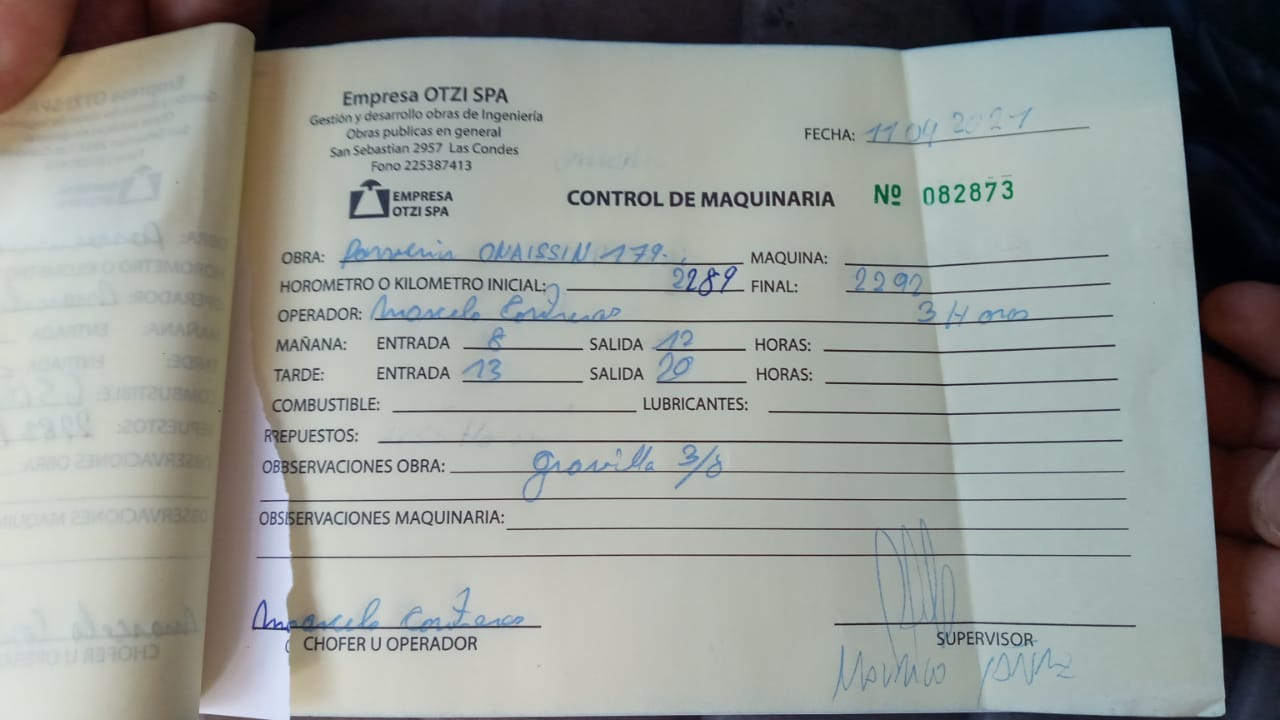 Empresa OTZI SPA
Gestión y desarrollo obras de Ingeniería
Obras publicas en general
San Sebastian 2957 Las Condes
Fono 225387413
EMPRESA
OTZI SPA
FECHA: 11 04 2021
CONTROL DE MAQUINARIA Nº 082873
OBRA: ONAISSIN 179. MAQUINA:
HOROMETRO O KILOMETRO INICIAL: 2289 FINAL: 2292
OPERADOR: Marcelo Contreras 3 Horas
MAÑANA: ENTRADA 8 SALIDA 12 HORAS:
TARDE: ENTRADA 13 SALIDA 20 HORAS:
COMBUSTIBLE: LUBRICANTES:
REPUESTOS:
OBSERVACIONES OBRA: gravilla 3/8
OBSERVACIONES MAQUINARIA:
Marcelo Contreras
CHOFER U OPERADOR
SUPERVISOR
Mauricio